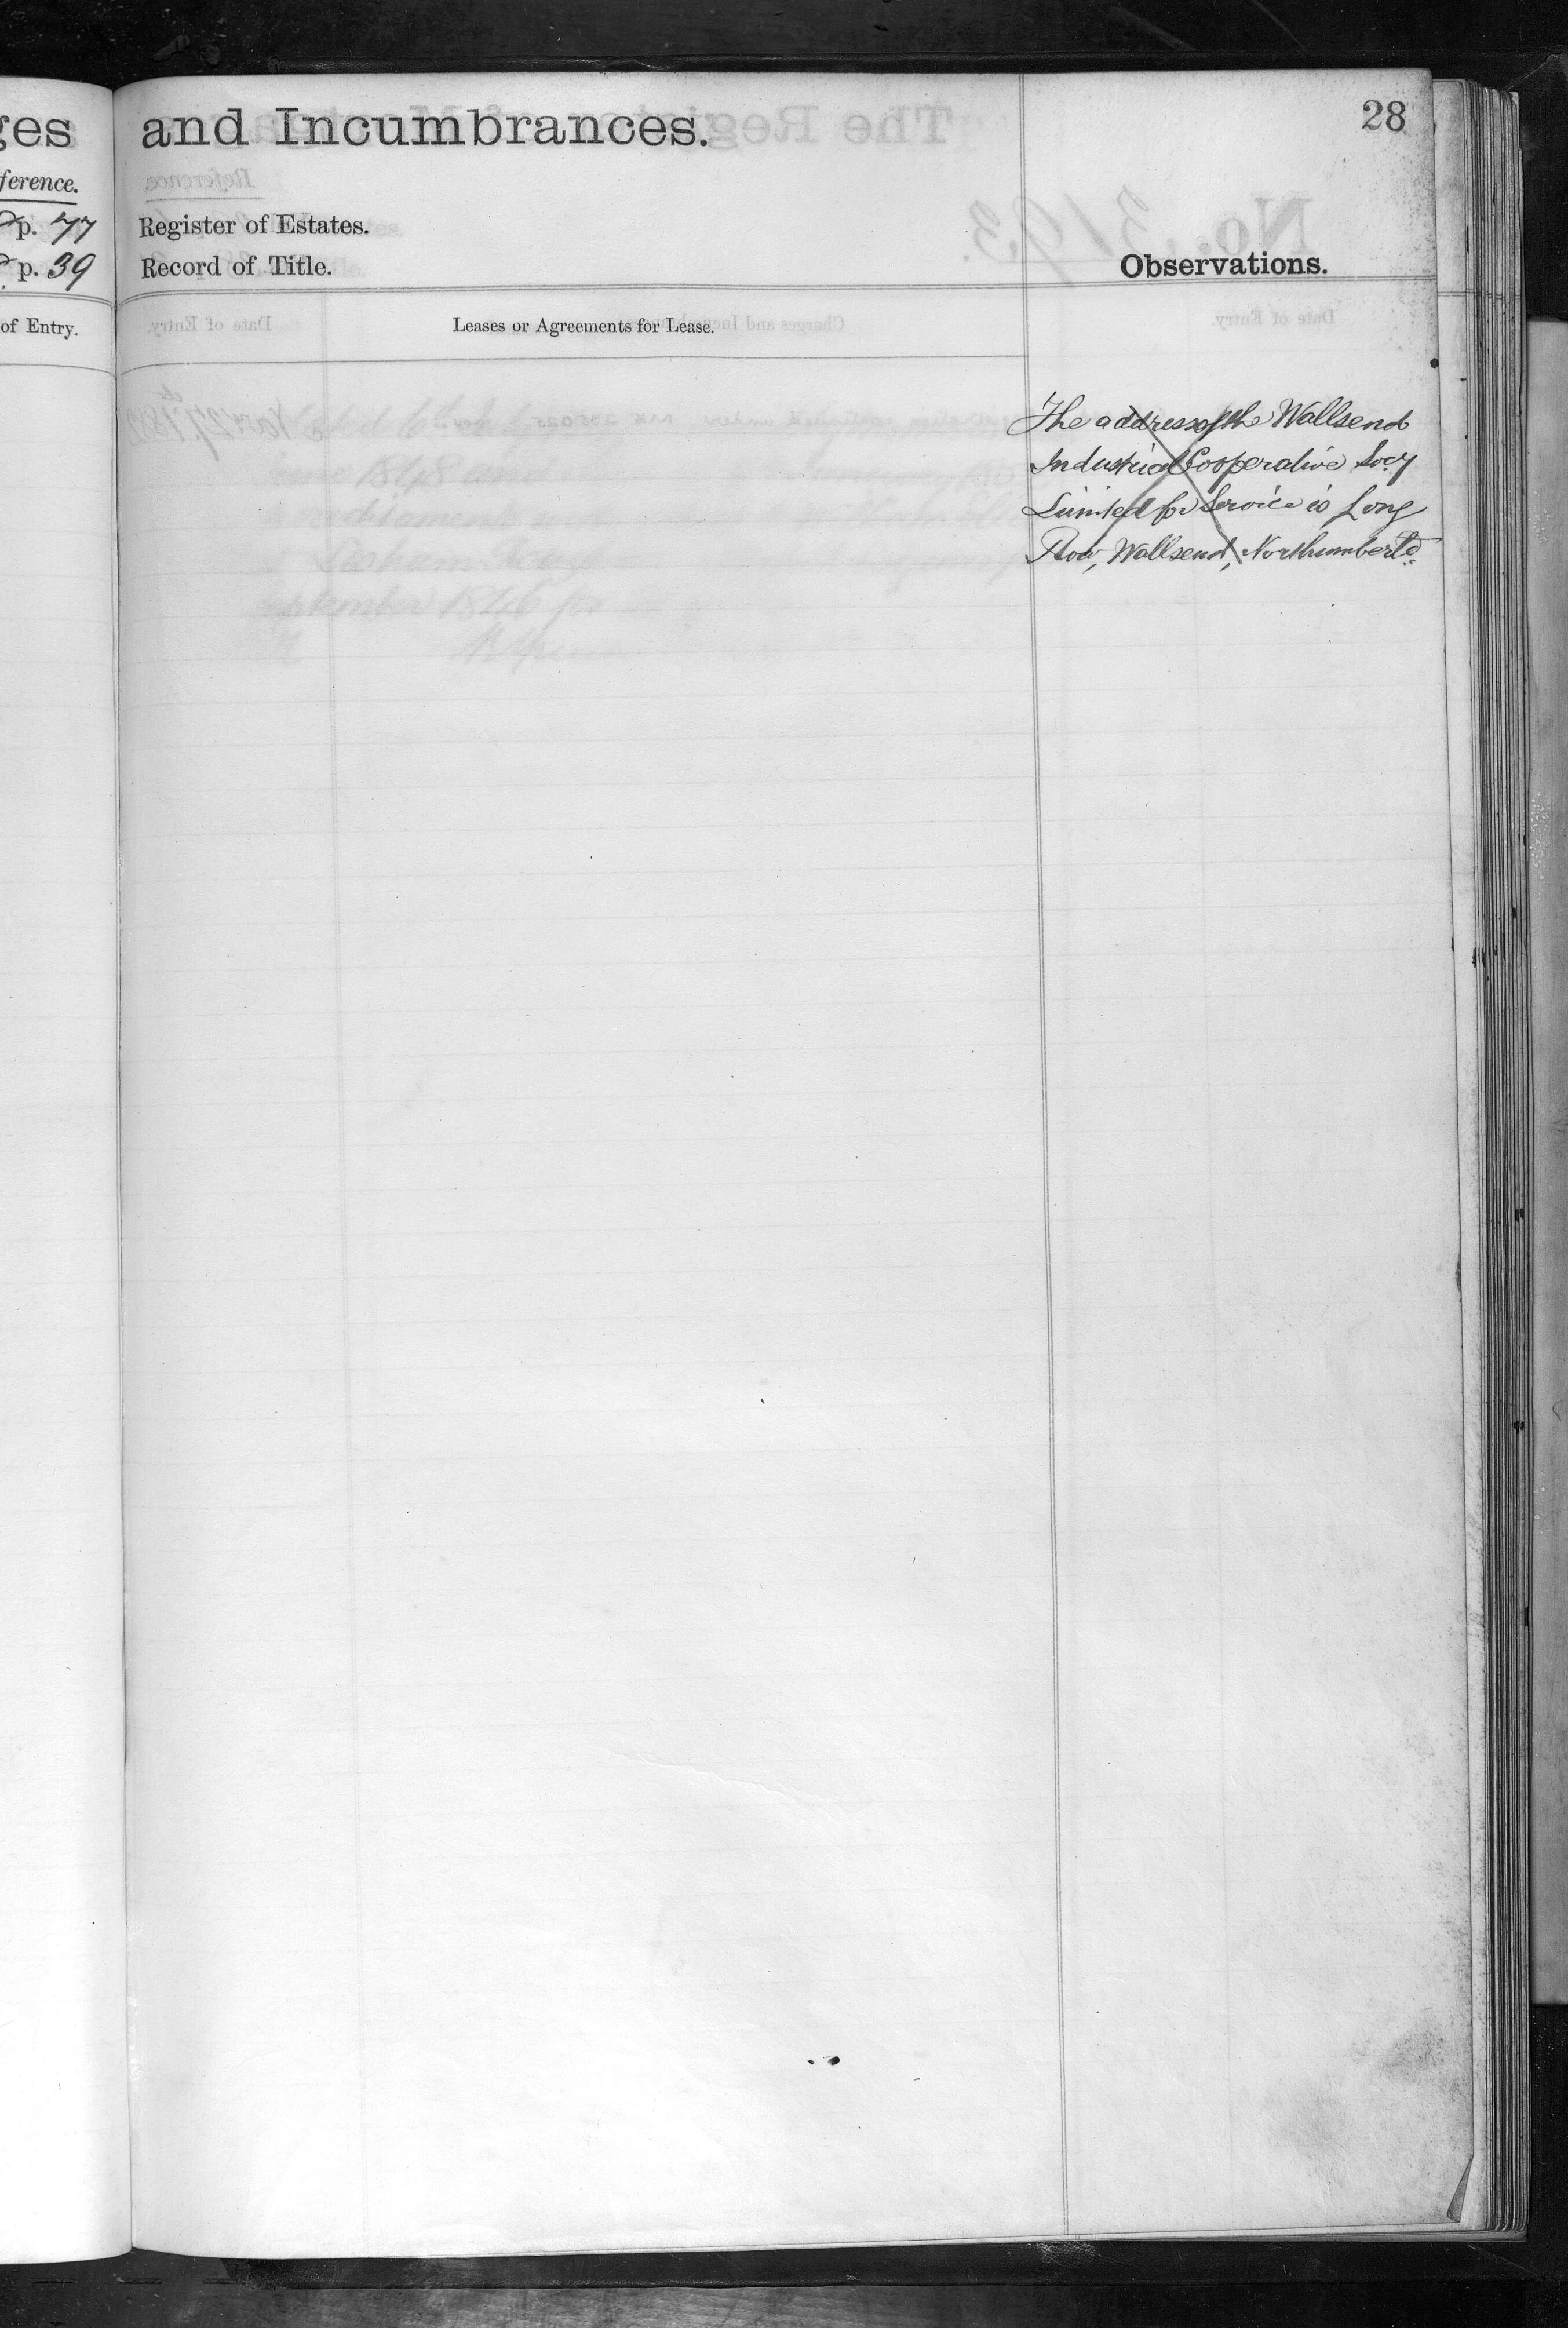 ges and Incumbrances.
28
ference.
p. 77 Register of Estates.
p. 39 Record of Title.
Observations.
of Entry.
Leases or Agreements for Lease.
The address of the Wallsend
Industrial Cooperative Socy
Limited for Service is Long
Row, Wallsend, Northumberld